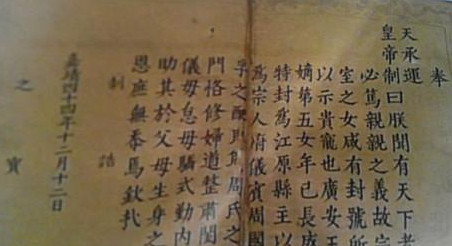 奉
天承運
皇帝制曰朕聞有天下者
必篤親親之義故宗
室之女咸有封號所
以示貴寵也廣安王
嫡第五女年已長成
特封為江原縣主以
為宗人府儀賓周國
孚之配既為周氏之
門恪修婦道整肅閨
儀毋怠毋驕式勤內
助其於父母生身之
恩庶無忝焉欽哉
制誥
嘉靖四十四年十二月十二日
之寶